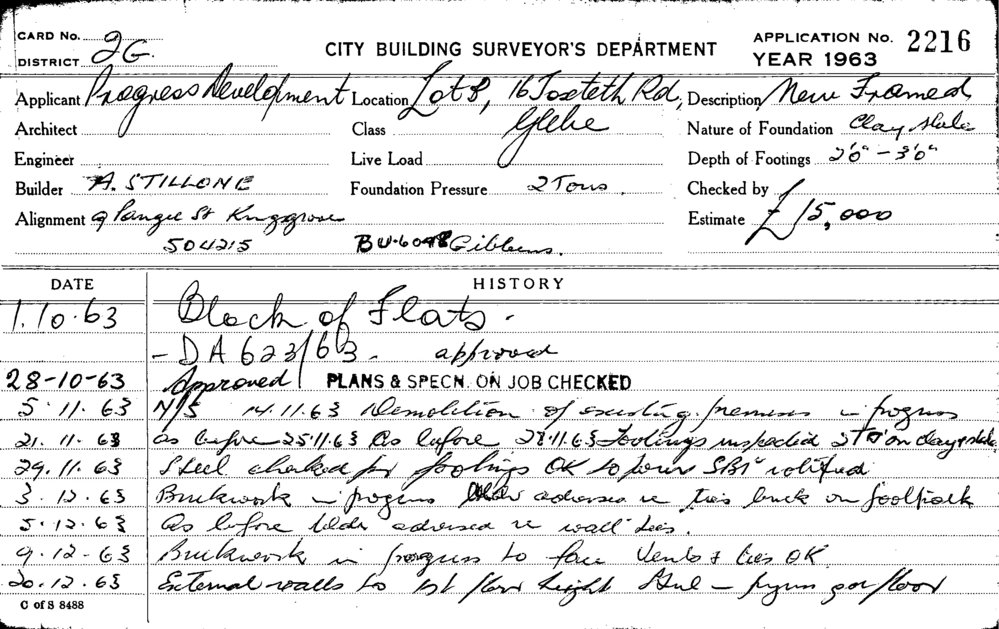 CARD No.
DISTRICT 2G
CITY BUILDING SURVEYOR'S DEPARTMENT
APPLICATION No. 2216
YEAR 1963
Applicant Progress Development Location Lot 8, 16 Toxteth Rd, Description New Framed
Architect Class Glebe Nature of Foundation Clay shale
Engineer Live Load Depth of Footings 2'0" - 3'0"
Builder A. STILLONE Foundation Pressure 2 Tons. Checked by
Alignment 9 St Kingsgrove Estimate £15,000
504215 BU.6098 Gibbens.
DATE HISTORY
1.10.63 Block of Flats.
- DA 623/63. approved
28-10-63 Approved PLANS & SPECN. ON JOB CHECKED
5.11.63 N/S 14.11.63 Demolition of existing premises in progress
21.11.63 as before 25.11.63 As before 28.11.63 Footings inspected on clay & shale
29.11.63 Steel checked for footings OK to pour
3.12.63 Brickwork in progress advised re
5.12.63 As before bldr advised re wall ties.
9.12.63 Brickwork in progress to Vents & ties OK
20.12.63 External walls to 1st floor height
C of S 8488